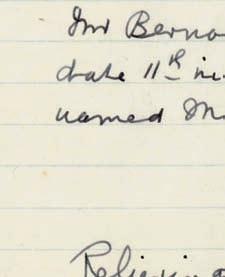 Mr Berna
date 11th in
named M
Relievin